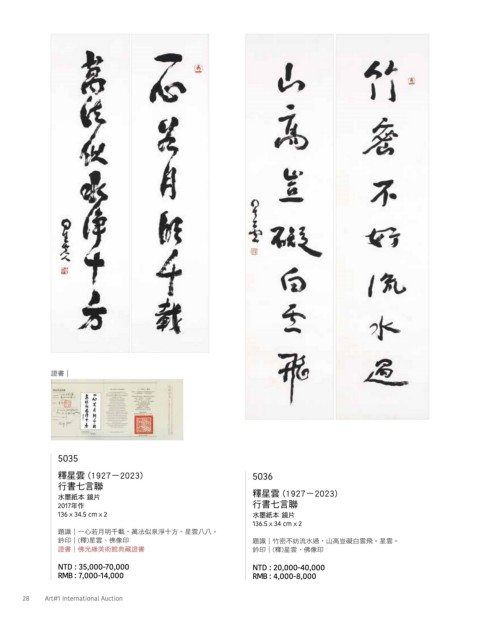 一心若月明千載
萬法似泉淨十方
星雲八八
竹密不妨流水過
山高豈礙白雲飛
星雲
證書｜
5035
釋星雲 (1927－2023)
行書七言聯
水墨紙本 鏡片
2017年作
136 x 34.5 cm x 2
題識｜一心若月明千載。萬法似泉淨十方。星雲八八。
鈐印｜(釋)星雲、佛像印
證書｜佛光緣美術館典藏證書
NTD : 35,000-70,000
RMB : 7,000-14,000
5036
釋星雲 (1927－2023)
行書七言聯
水墨紙本 鏡片
136.5 x 34 cm x 2
題識｜竹密不妨流水過。山高豈礙白雲飛。星雲。
鈐印｜(釋)星雲、佛像印
NTD : 20,000-40,000
RMB : 4,000-8,000
28 Art#1 International Auction